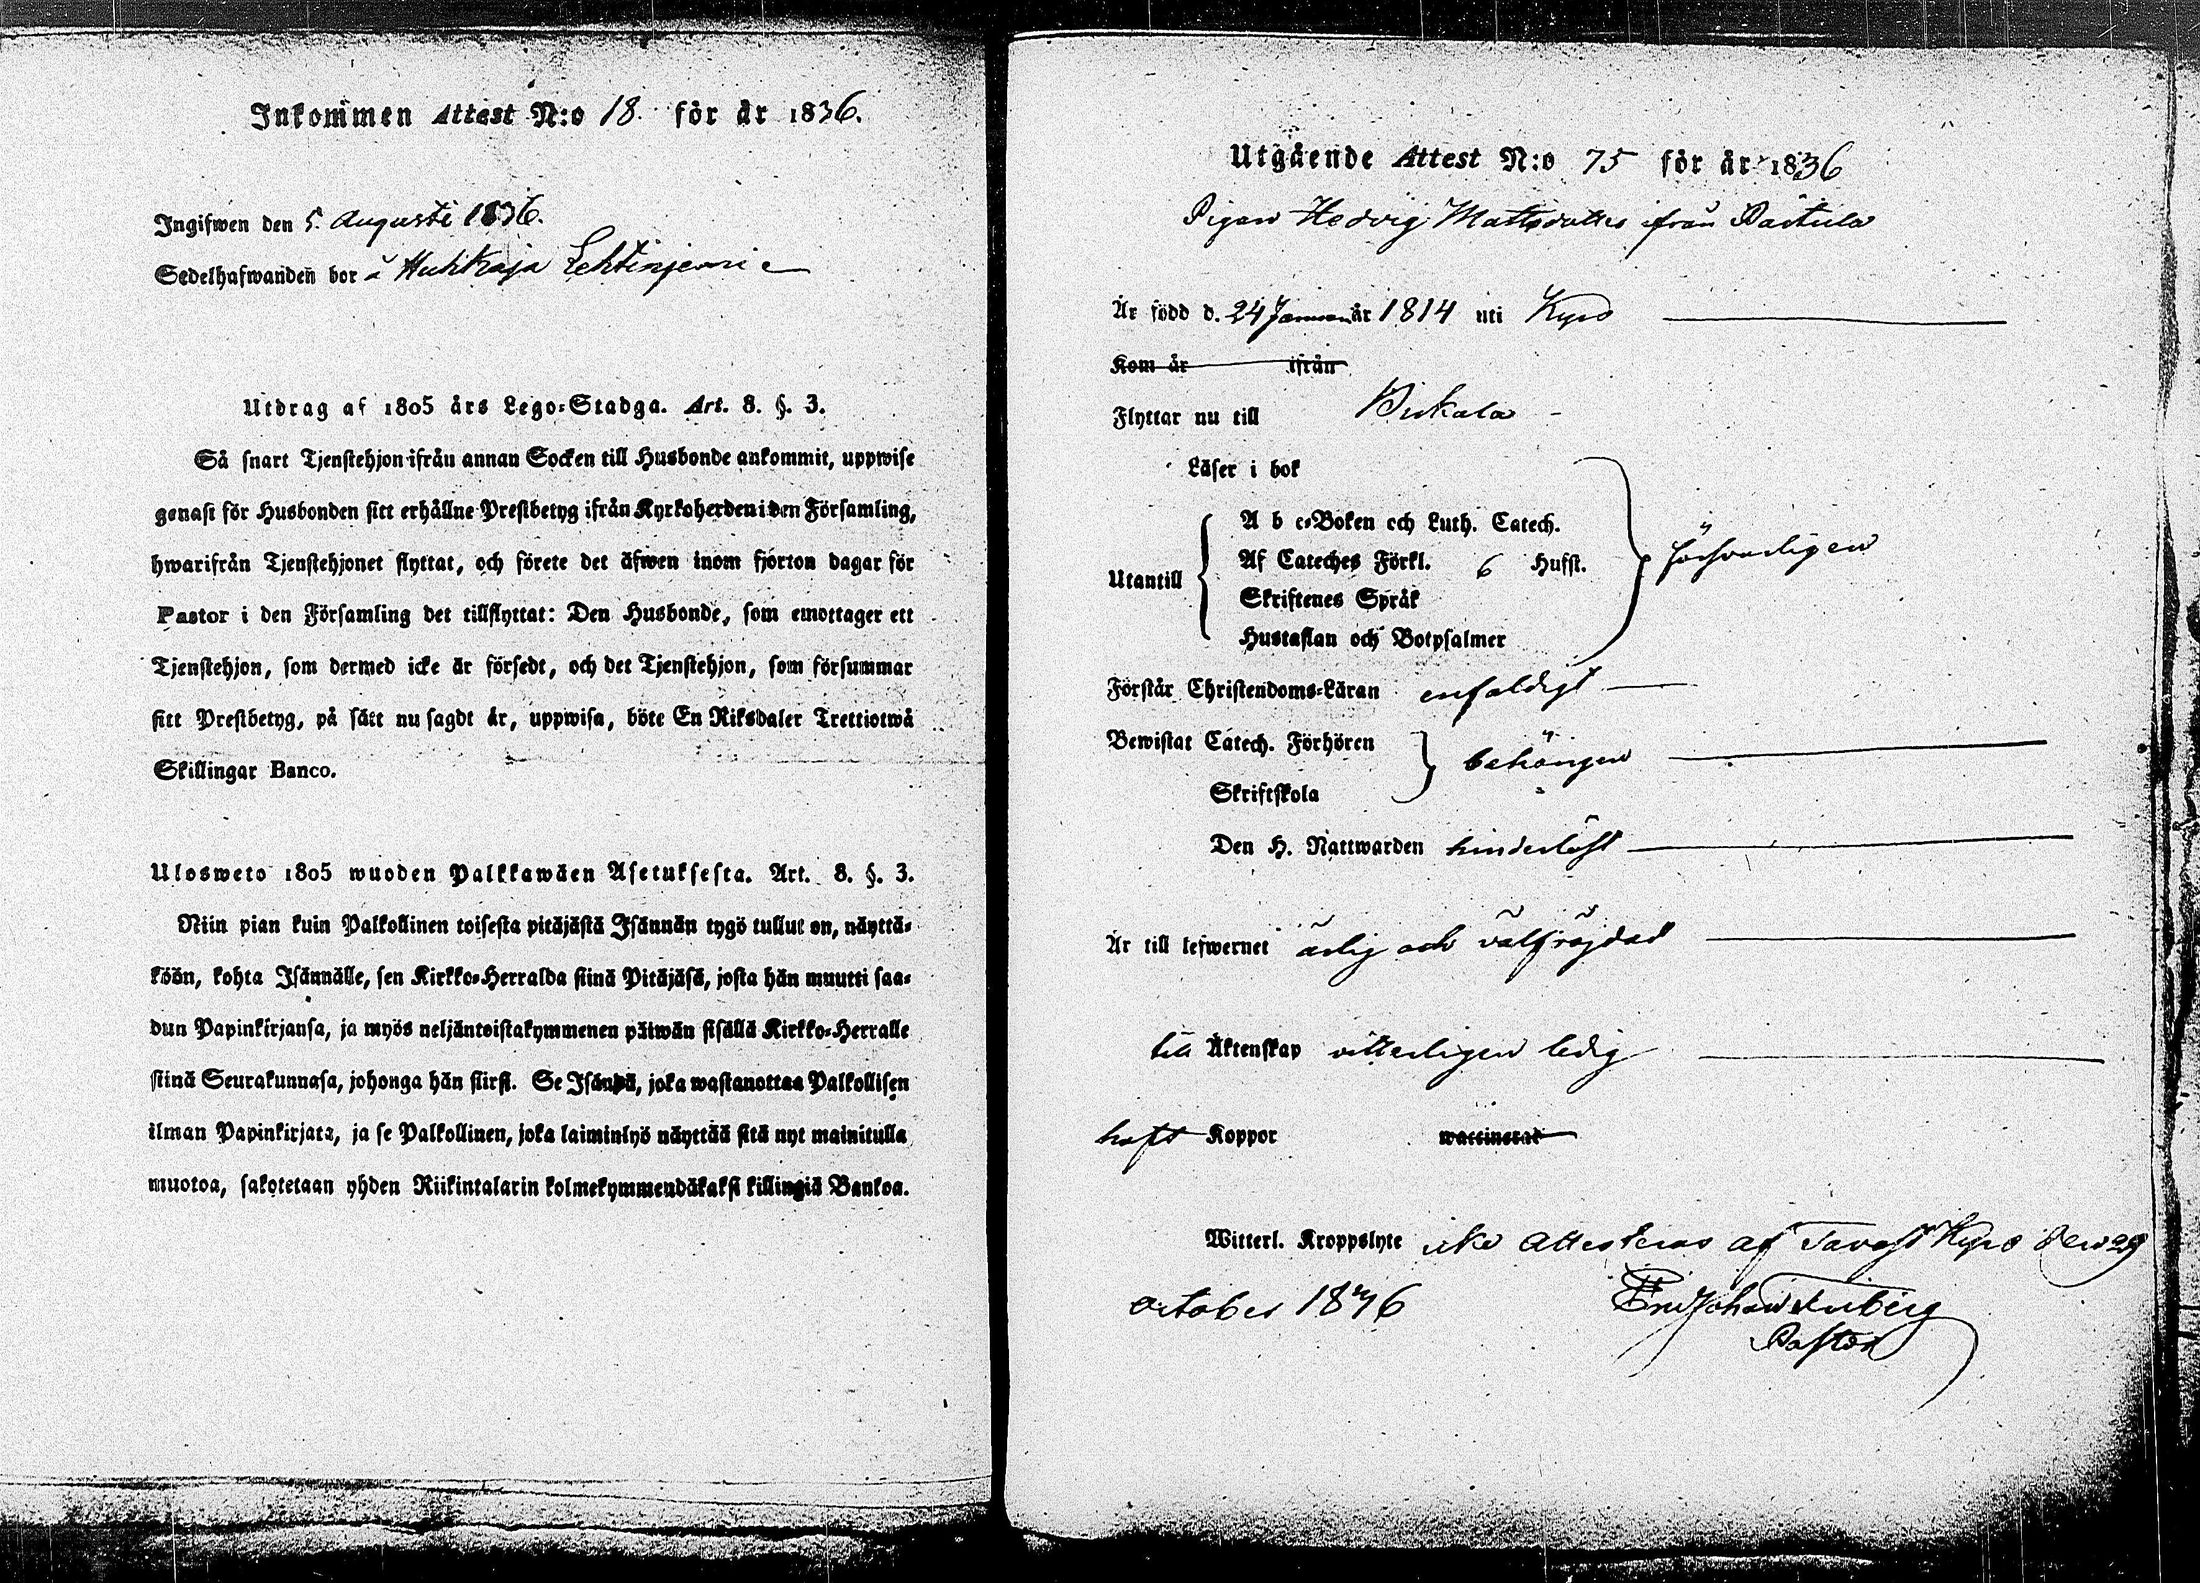 Inkommen Attest N:o 18. för år 1836.
Ingifwen den 5. Augusti 1836.
Sedelhafwanden bor å
Utdrag af 1805 års Lego=Stadga. Art. 8. §. 3.
Så snart Tjenstehjon ifrån annan Socken till Husbonde ankommit, uppwise
genast för Husbonden sitt erhållne Prestbetyg ifrån Kyrkoherden i den Församling,
hwarifrån Tjenstehjonet flyttat, och förete det äfwen inom fjorton dagar för
Pastor i den Församling det tillflyttat: Den Husbonde, som emottager ett
Tjenstehjon, som dermed icke är försedt, och det Tjenstehjon, som försummar
sitt Prestbetyg, på sätt nu sagdt är, uppwisa, böte En Riksdaler Trettiotwå
Skillingar Banco.
Ulosweto 1805 wuoden Palkkawäen Asetuksesta. Art. 8. §. 3.
Niin pian kuin Palkollinen toisesta pitäjästä Isännän tygö tullut on, näyttä=
köön, kohta Isännälle, sen Kirkko=Herralda siinä Pitäjäsä, josta hän muutti saa=
dun Papinkirjansa, ja myös neljäntoistakymmenen päiwän sisällä Kirkko=Herralle
siinä Seurakunnasa, johonga hän siirsi. Se Isändä, joka wastanottaa Palkollisen
ilman Papinkirjata, ja se Palkollinen, joka laiminlyö näyttää sitä nyt mainitulla
muotoa, sakotetaan yhden Riikintalarin kolmekymmendäkaksi killingiä Bankoa.
Utgående Attest N:o 75 för år 1836
Pigan Hedvig Mattsdotter ifrån
Är född d. 24 Januari år 1814 uti Kyro
Kom år ifrån
Flyttar nu till Birkala
Läser i bok
Utantill
A b c=Boken och Luth. Catech.
Af Cateches Förkl. 6 Hufst.
Skriftenes Språk
Hustaflan och Botpsalmer
försvarligen
Förstår Christendoms=Läran enfaldigt
Bewistat Catech. Förhören
Skriftskola
behörigen
Den H. Nattwarden hinderlöst
Är till lefwernet ärlig och välfräjdad
till Äktenskap vitterligen ledig
haft Koppor waccinerad
Witterl. Kroppslyte icke Attesteras af Tavast Kyro den 29
October 1836
Pastor